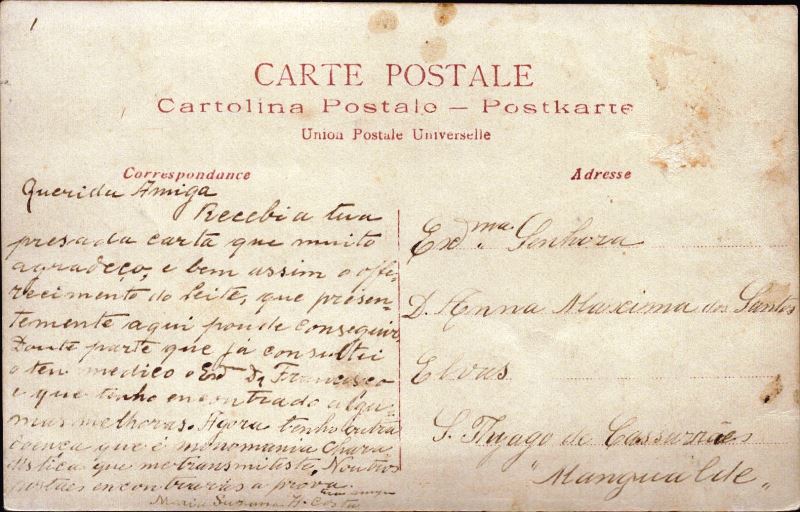 CARTE POSTALE
Cartolina Postale – Postkarte
Union Postale Universelle
Correspondance
Querida Amiga
Recebi a tua
presada carta que muito
agradeço, e bem assim o offe-
recimento do leite, que presen-
temente aqui poude conseguir.
Dou-te parte que já consultei
o teu medico o Exᵒ Dr Francisco
e que tenho encontrado algu-
mas melhoras. Agora tenho outra
doença que é monomania chara
distica que me transmitiste. Noutros
postaes encontrarás a prova.
Maria Suzana H. Costa
Adresse
Exᵐᵃ. Senhora
D. Anna Maxima dos Santos
Elvas
S. Thyago de Cassurrães
"Mangualde"